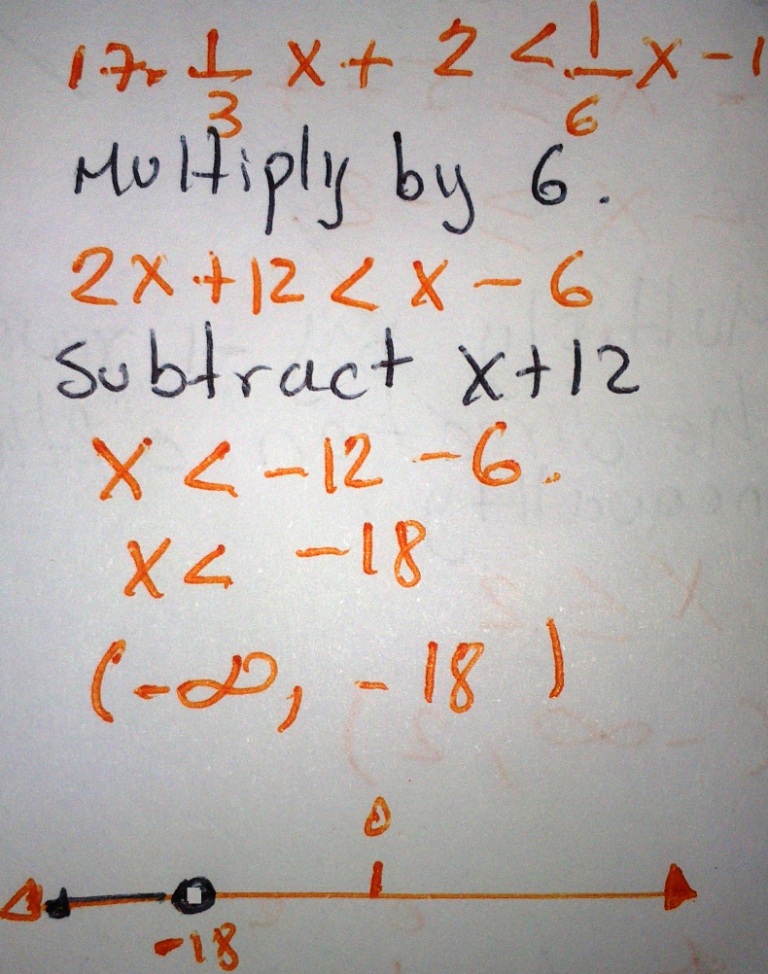 17. 1/3 x + 2 < 1/6 x - 1
Multiply by 6.
2x + 12 < x - 6
Subtract x+12
x < -12 - 6.
x < -18
(-∞, -18)
0
-18